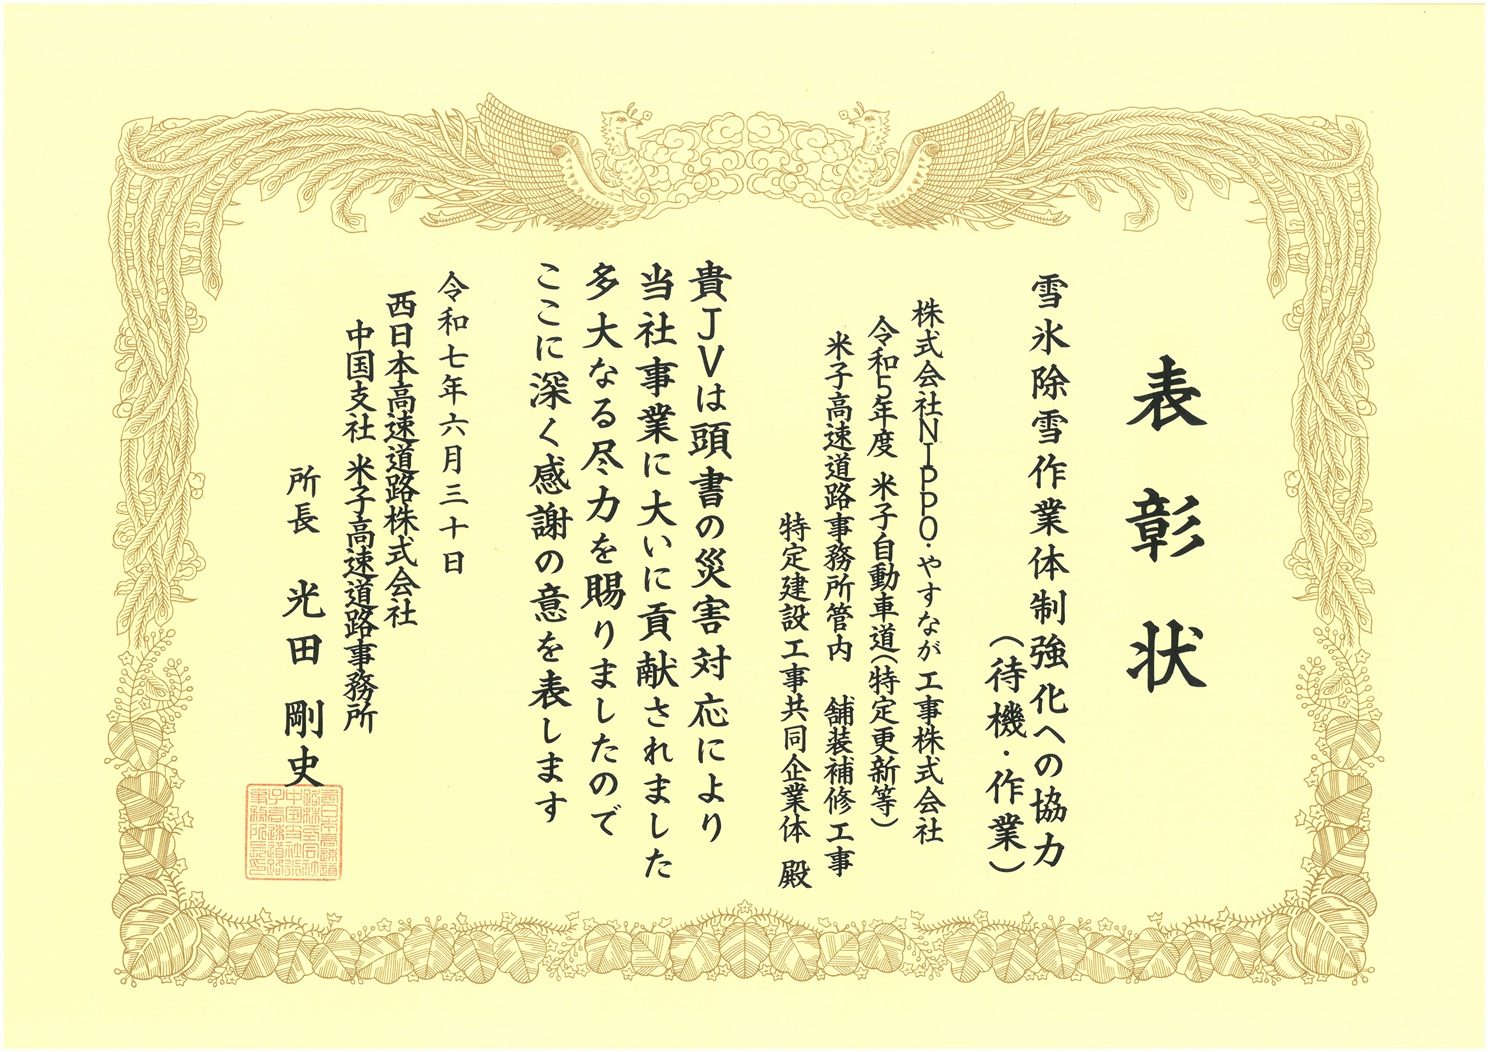 表彰状
雪氷除雪作業体制強化への協力
（待機・作業）
株式会社NIPPO・やすなが工事株式会社
令和5年度 米子自動車道（特定更新等）
米子高速道路事務所管内 舗装補修工事
特定建設工事共同企業体 殿
貴JVは頭書の災害対応により
当社事業に大いに貢献されました
多大なる尽力を賜りましたので
ここに深く感謝の意を表します
令和七年六月三十日
西日本高速道路株式会社
中国支社 米子高速道路事務所
所長 光田 剛史